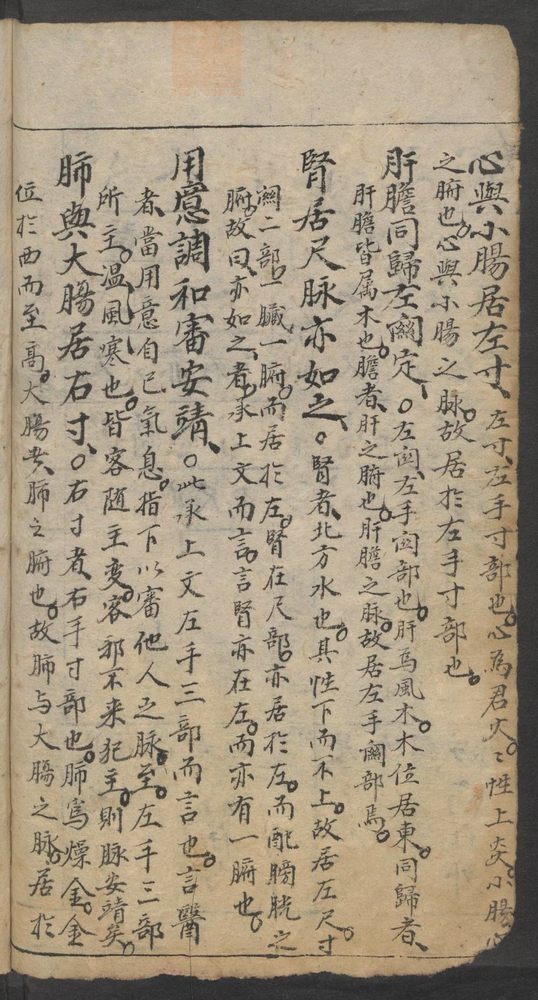 心與小腸居左寸、左寸、左手寸部也。心為君火。〻性上炎。小腸心
之腑也。心與小腸之脉。故居於左手寸部也。
肝膽同歸左関定、○左関、左手関部也。肝爲風木。木位居東。同歸者、
肝膽皆属木也。膽者、肝之腑也。肝膽之脉。故居左手関部焉。
腎居尺脉亦如之、○腎者、北方水也。其性下而不上。故居左尺寸
関二部。一臟一腑。而居於左。腎在尺部。亦居於左。而配膀胱之
腑。故曰、亦如之、者、承上文而言。言腎亦在左。而亦有一腑也。
用意調和審安靖、○此承上文左手三部而言也。言醫
者、當用意自己氣息。指下以審他人之脉。至。左手三部
所主。温風寒也。皆客随主变。客邪不来犯主。則脉安靖矣。
肺與大腸居右寸、○右寸者、右手寸部也。肺爲燥金。金
位於西而至高。大腸者、肺之腑也。故肺与大腸之脉。居於